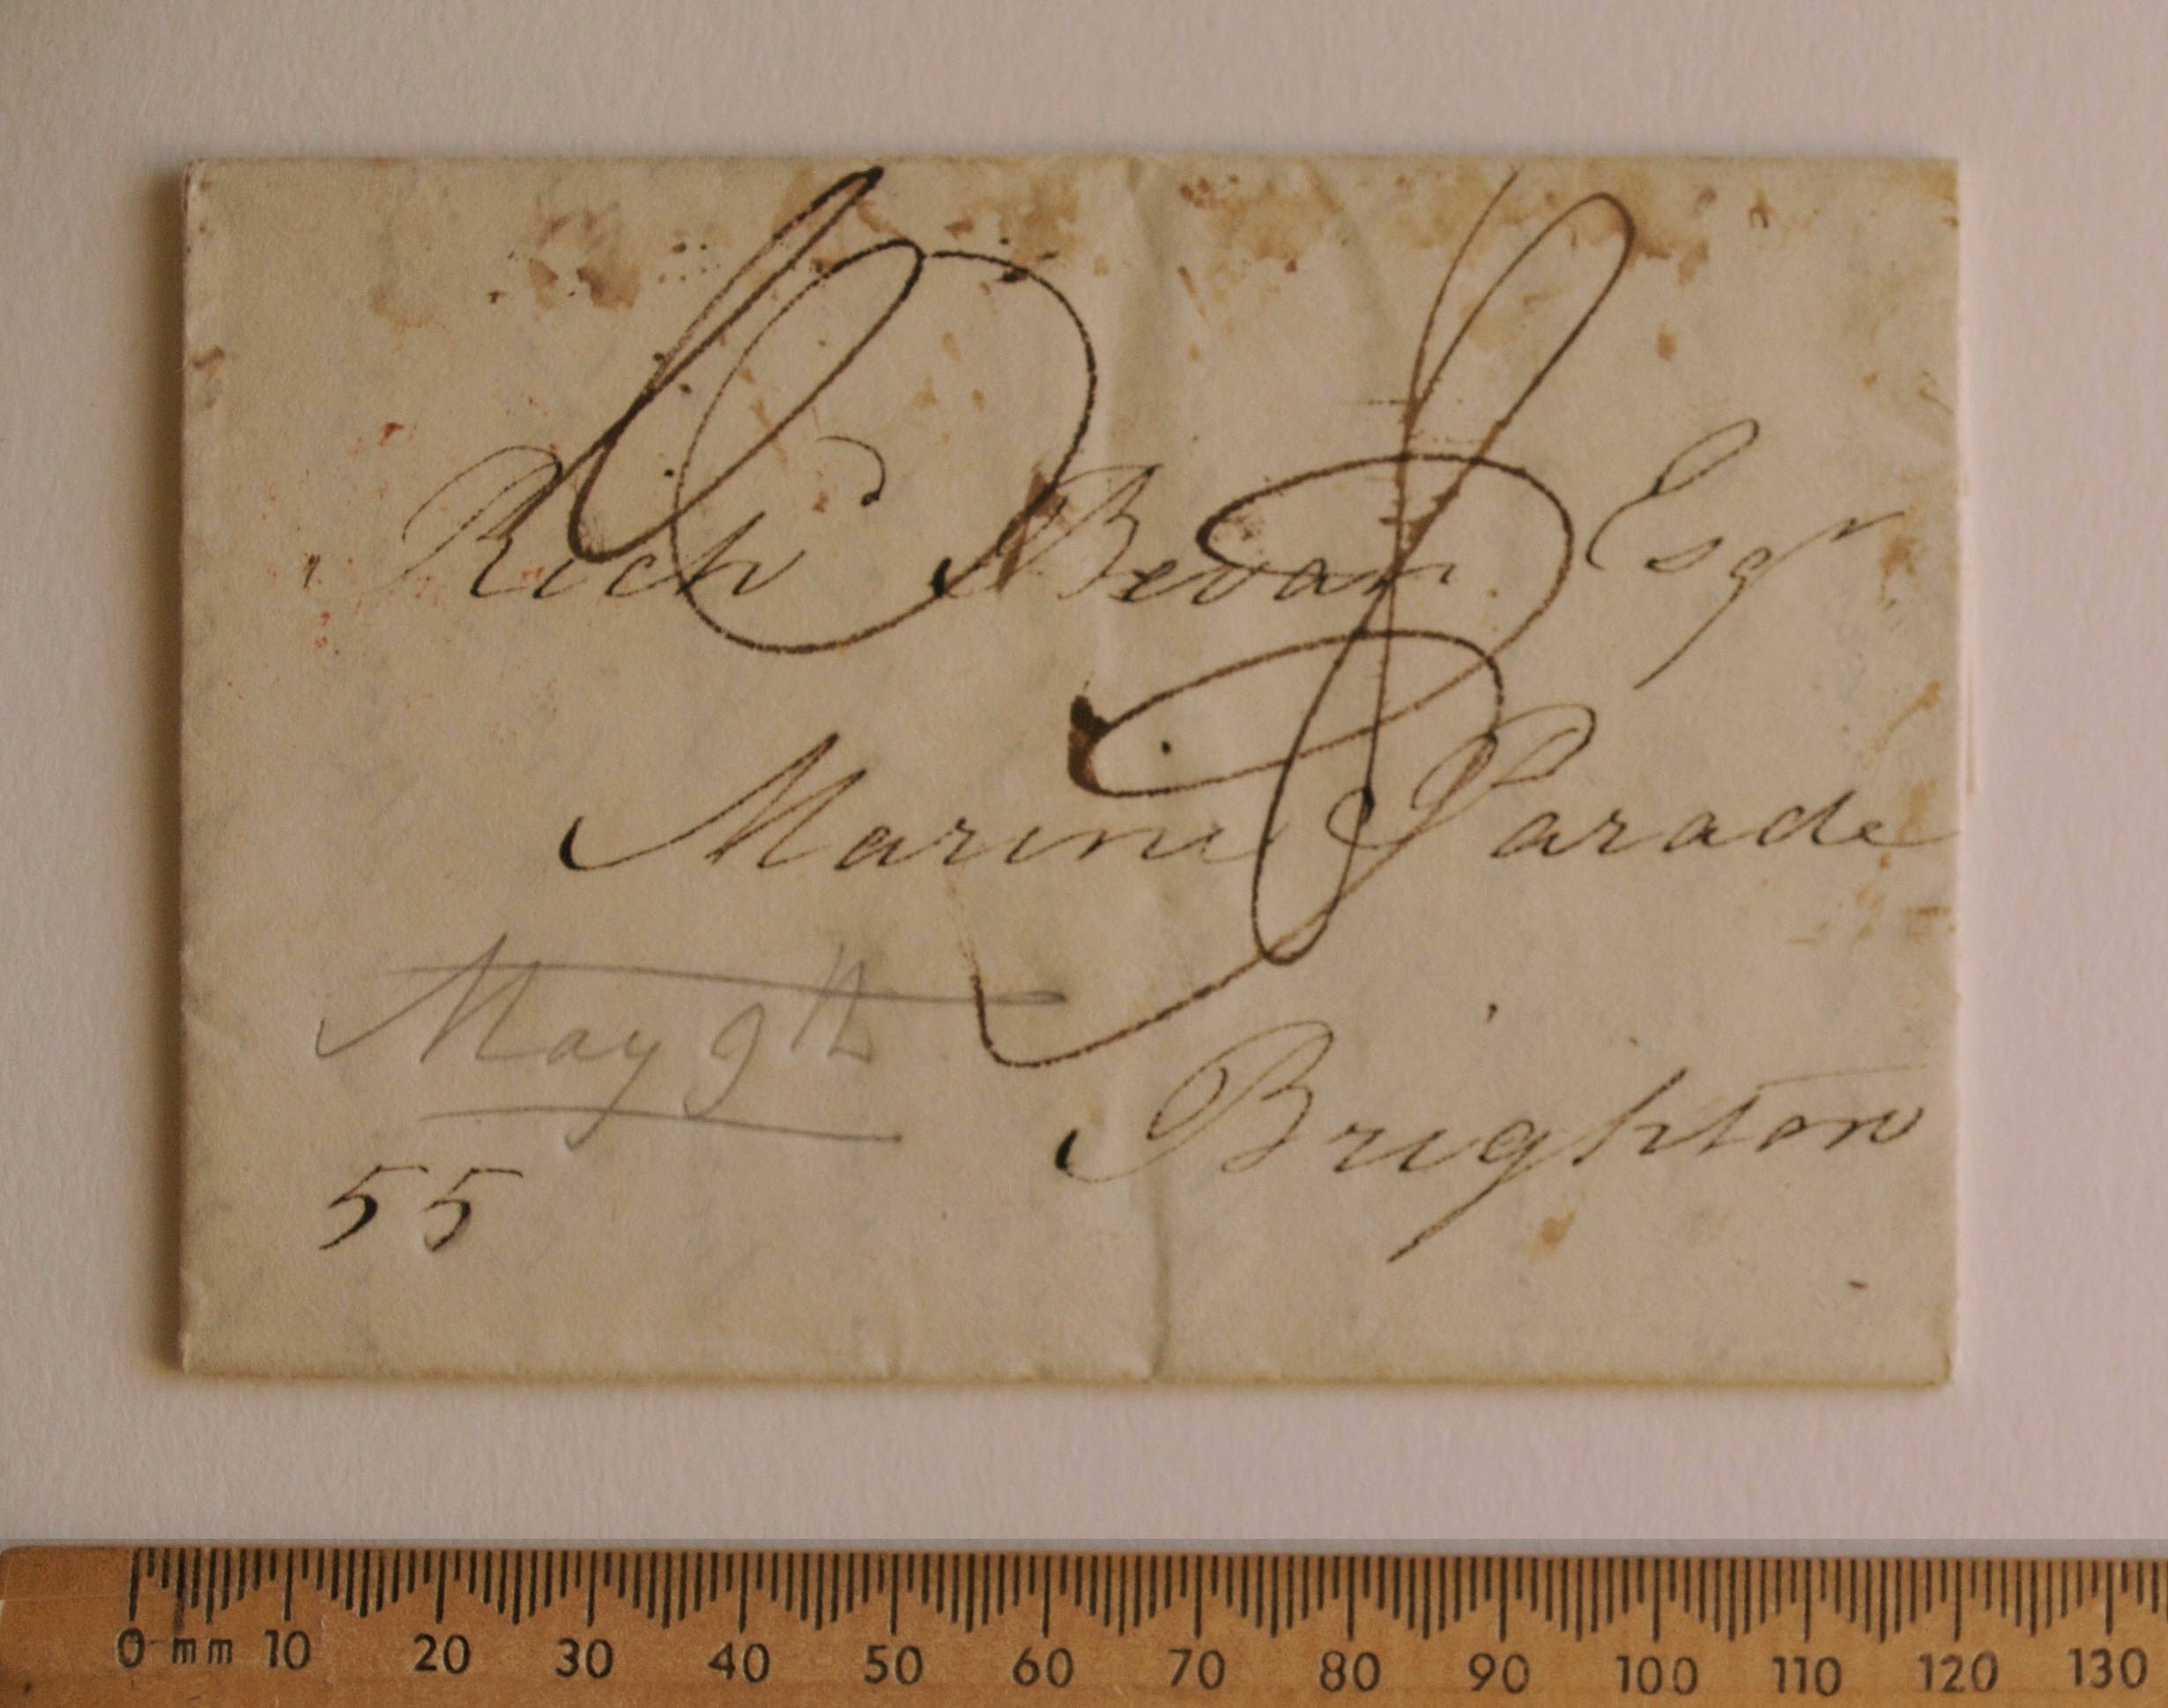 Richd Bevan Esqr
Marine Parade
Brighton
May 9th
55
0 mm 10 20 30 40 50 60 70 80 90 100 110 120 130